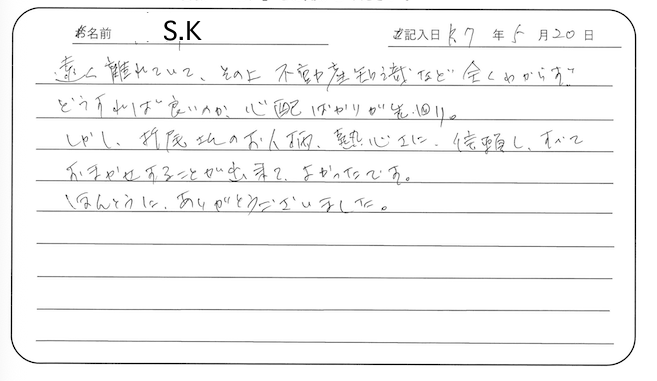 お名前 S.K ご記入日 R7 年 5 月 20 日
遠く離れていて、その上 不動産知識など 全くわからず
どうすれば良いのか、心配ばかりが先廻り。
しかし、折尾さんのお人柄、熱心さに、信頼し、すべて
おまかせすることが出来て、よかったです。
ほんとうに、ありがとうございました。